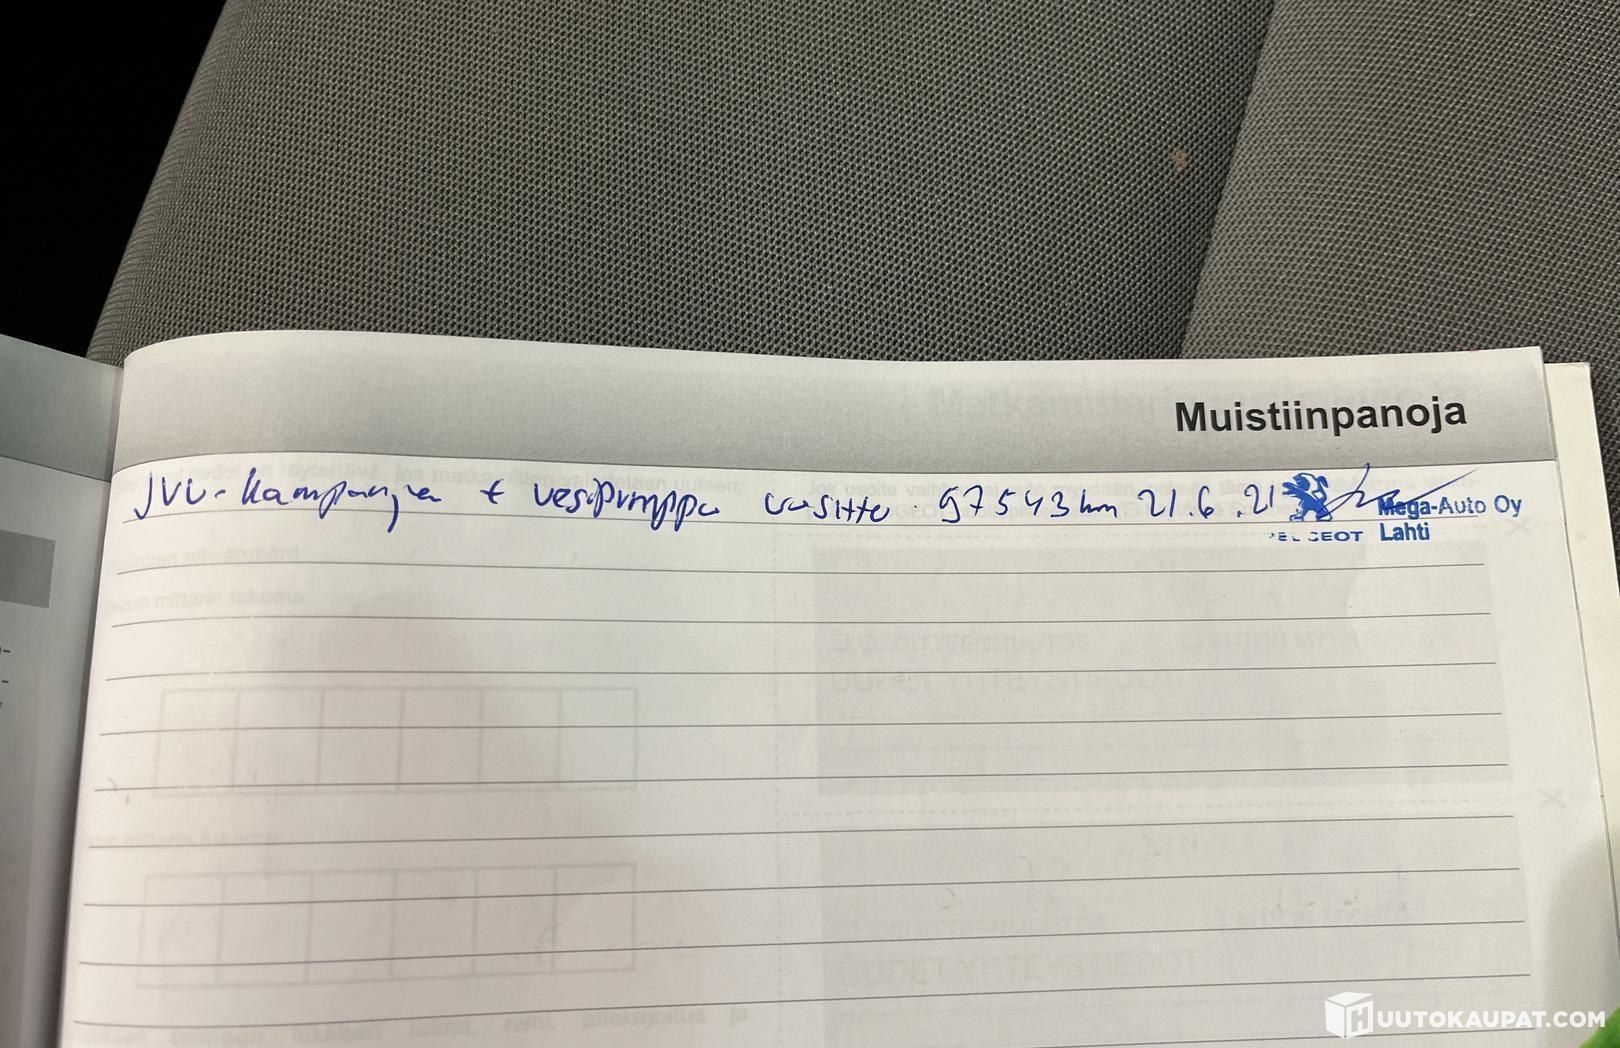 Muistiinpanoja
JVU-kampanja + vesipumppu uusittu 97543km 21.6.21
Mega-Auto Oy
PEUGEOT Lahti
HUUTOKAUPAT.COM